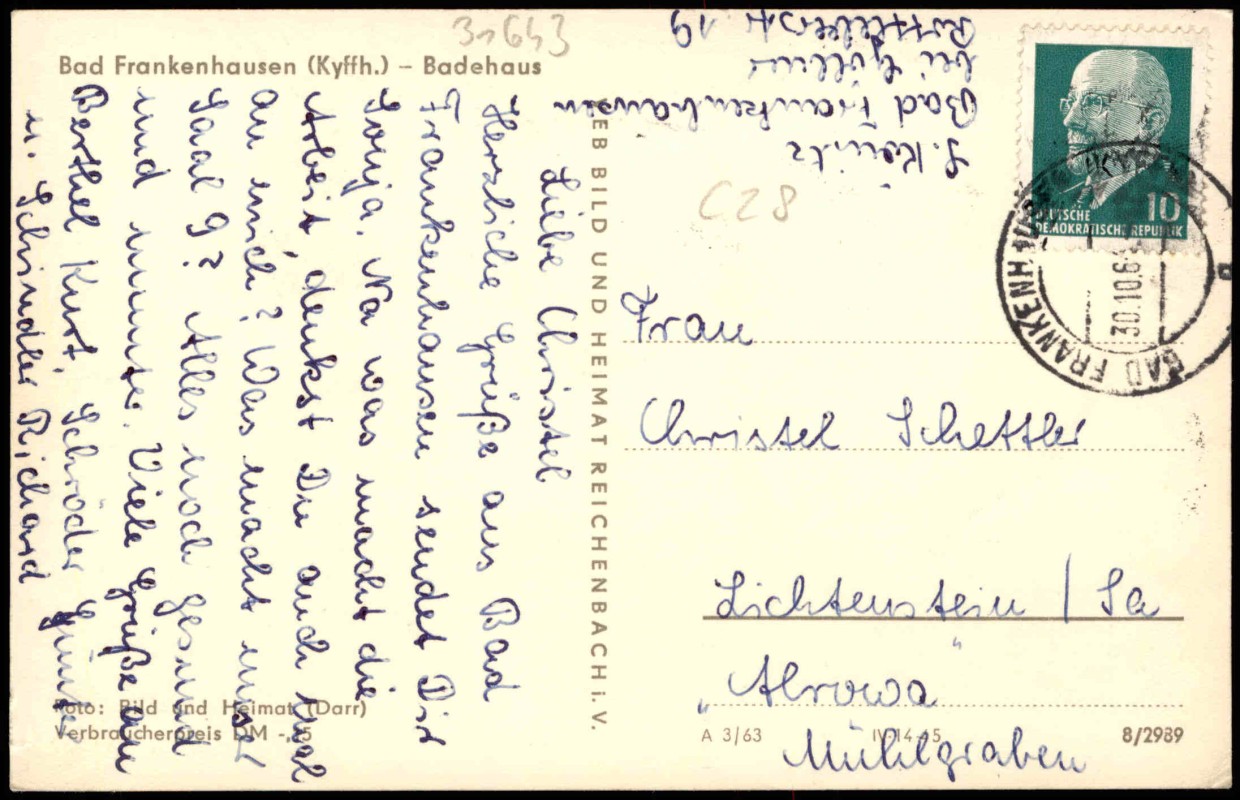 Bad Frankenhausen (Kyffh.) – Badehaus
31643
Liebe Christel
Herzliche Grüße aus Bad
Frankenhausen sendet Dir
Sonja. Na was macht die
Arbeit, denkst Du auch viel
an mich? Was macht unser
Saal 9? Alles noch gesund
und munter. Viele Grüße an
Berthel Kurt, Schröder Günter
u. Schindler Richard
Foto: Bild und Heimat (Darr)
Verbraucherpreis DM -,25
VEB BILD UND HEIMAT REICHENBACH i. V.
Bad Frankenhausen
bei
19
C28
10
DEUTSCHE
DEMOKRATISCHE REPUBLIK
BAD FRANKENHAUSEN
30.10.6
Frau
Christel Schettler
Lichtenstein / Sa
"Alrowa"
Mühlgraben
A 3/63
IV-14-45
8/2989